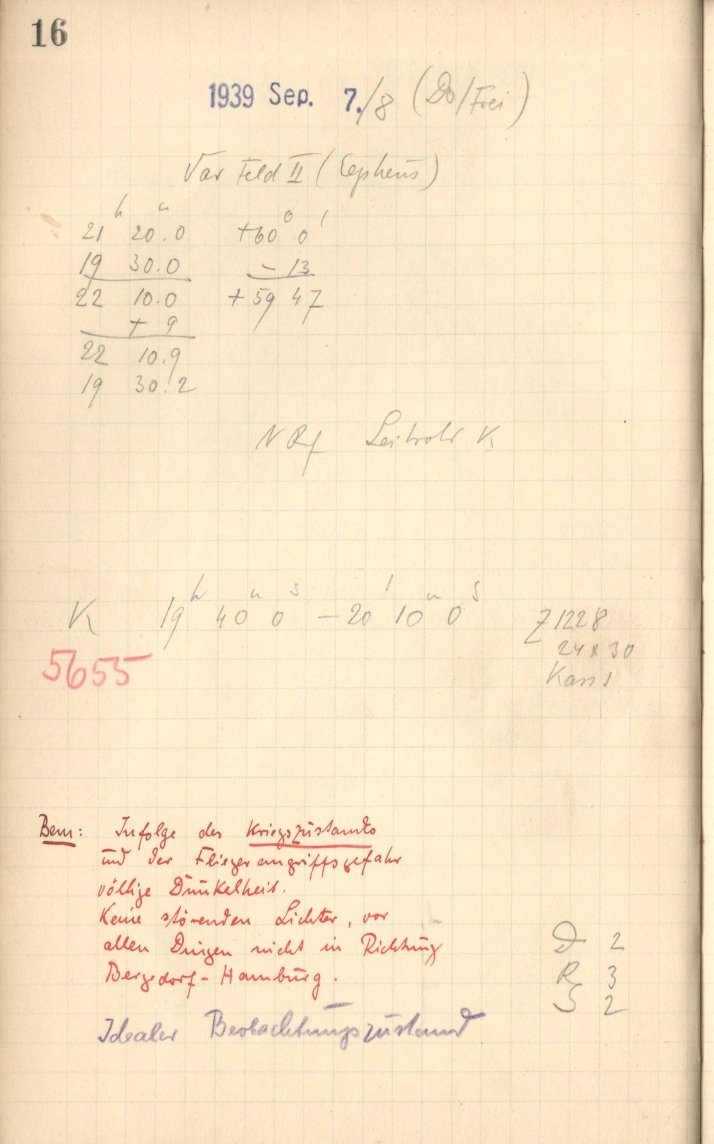 16
1939 Sep. 7./8 (Do/Frei)
Var Feld II (Cepheus)
h m o '
21 20.0 +60 0
19 30.0 - 13
22 10.0 +59 47
+ 9
22 10.9
19 30.2
N Rf Leitrohr K
h m s 1 m s
K 19 40 0 - 20 10 0 Z 1228
24 x 30
Kass 1
5655
Bem: Infolge des Kriegszustands
und der Fliegerangriffsgefahr
völlige Dunkelheit.
Keine störenden Lichter, vor
allen Dingen nicht in Richtung
Bergedorf-Hamburg.
D 2
R 3
S 2
Idealer Beobachtungszustand